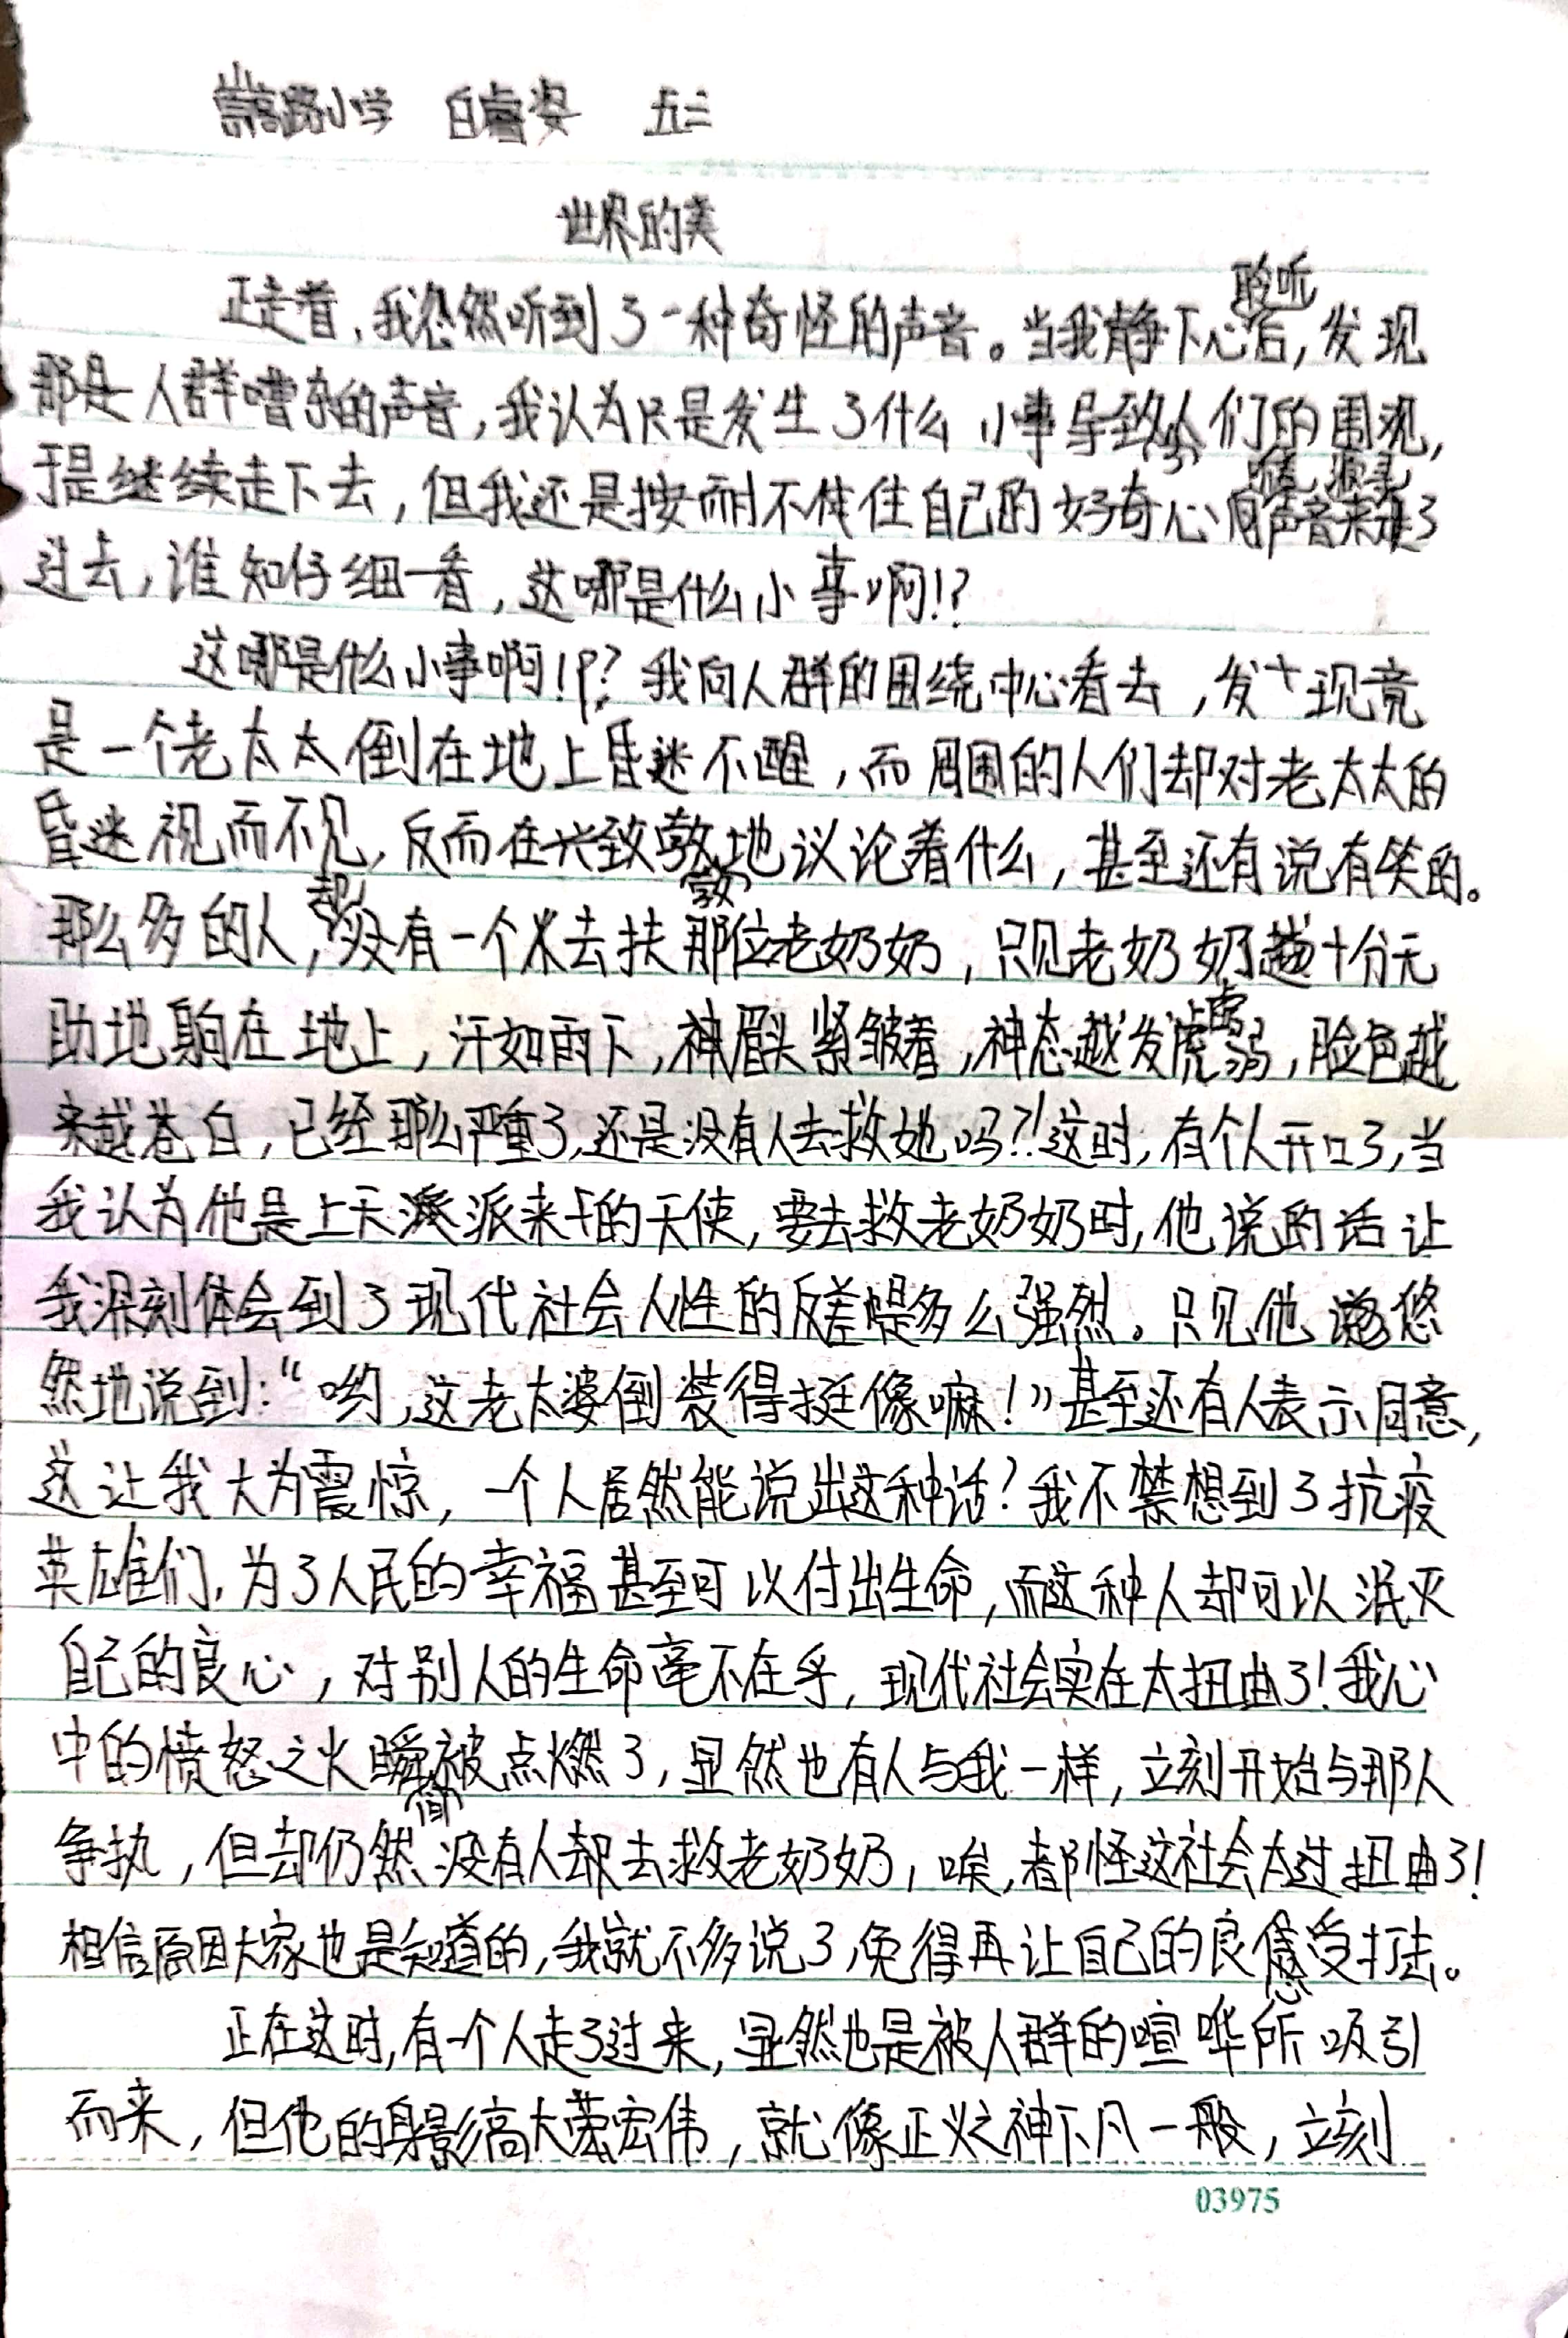 崇高路小学 白睿姿 五三
世界的美
正走着，我忽然听到了一种奇怪的声音。当我静下心聆听后，发现
那是人群嘈杂的声音，我认为只是发生了什么小事导致人们的围观，
于是继续走下去，但我还是按耐不住自己的好奇心，向声音来源寻了
过去，谁知仔细一看，这哪是什么小事啊！？
这哪是什么小事啊！？我向人群的围绕中心看去，发现竟
是一个老太太倒在地上昏迷不醒，而周围的人们却对老太太的
昏迷视而不见，反而在兴致勃勃地议论着什么，甚至还有说有笑的。
那么多的人，却没有一个人去扶那位老奶奶，只见老奶奶十分无
助地躺在地上，汗如雨下，眉头紧皱着，神态越发虚弱，脸色越
来越苍白，已经那么严重了，还是没有人去救她吗？！这时，有个人开口了，当
我认为他是上天派来的天使，要去救老奶奶时，他说的话让
我深刻体会到了现代社会人性的反差是多么强烈。只见他悠
然地说到：“哟，这老太婆倒装得挺像嘛！”甚至还有人表示同意，
这让我大为震惊，一个人居然能说出这种话？我不禁想到了抗疫
英雄们，为了人民的幸福甚至可以付出生命，而这种人却可以泯灭
自己的良心，对别人的生命毫不在乎，现代社会实在太扭曲了！我心
中的愤怒之火瞬间被点燃了，显然也有人与我一样，立刻开始与那人
争执，但却仍然没有人去救老奶奶，唉，都怪这社会太过扭曲了！
相信原因大家也是知道的，我就不多说了，免得再让自己的良心受打击。
正在这时，有一个人走了过来，显然也是被人群的喧哗所吸引
而来，但他的身影高大宏伟，就像正义之神下凡一般，立刻
03975